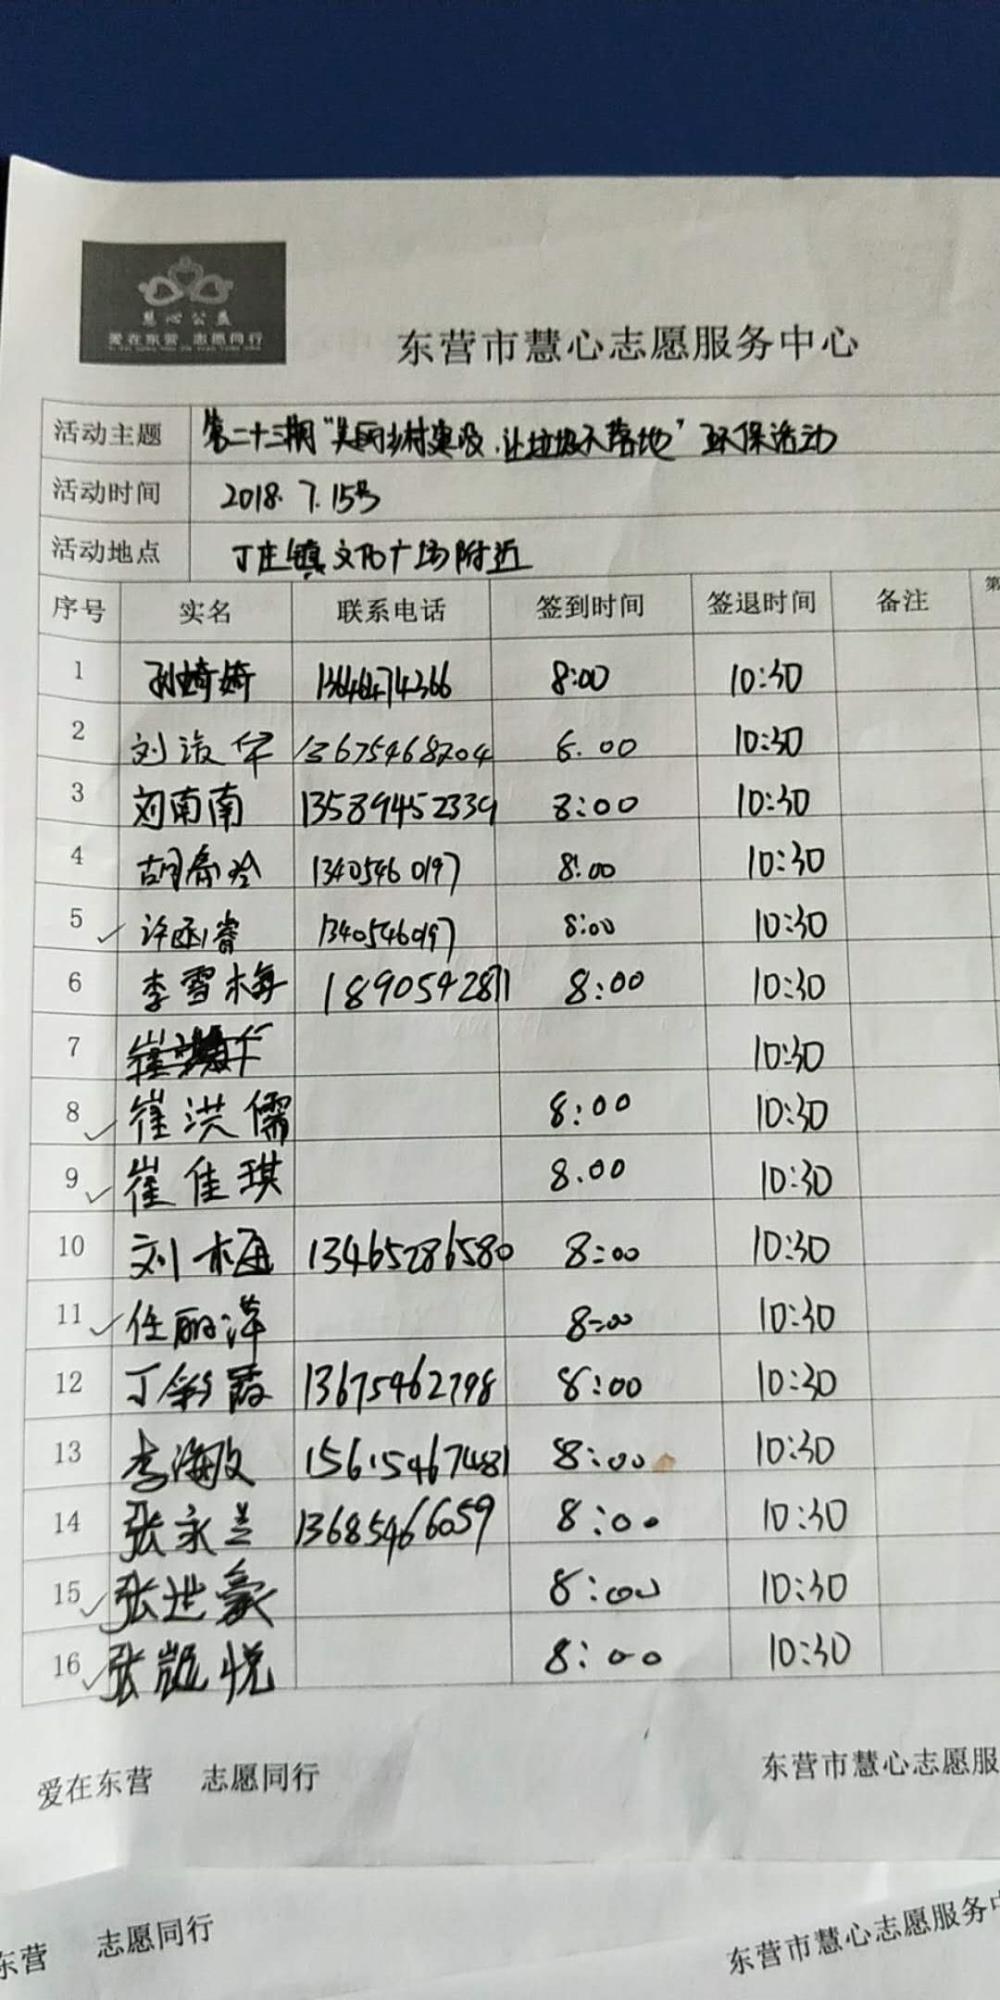 慧心公益
爱在东营 志愿同行
东营市慧心志愿服务中心
活动主题 第二十三期"美丽乡村建设,让垃圾不落地"环保活动
活动时间 2018.7.15号
活动地点 丁庄镇文化广场附近
序号 实名 联系电话 签到时间 签退时间 备注 第
1 孙婷婷 13646474366 8:00 10:30
2 刘 13675468204 8.00 10:30
3 刘南南 13589452339 8:00 10:30
4 胡 1340546 0197 8:00 10:30
5 ✓ 许函睿 13405460197 8:00 10:30
6 李雪梅 18905428711 8:00 10:30
7 崔 10:30
8 ✓ 崔洪儒 8:00 10:30
9 ✓ 崔佳琪 8.00 10:30
10 刘梅 13465286580 8:00 10:30
11 ✓ 任丽萍 8:00 10:30
12 丁彩霞 13675462798 8:00 10:30
13 李海 15615467481 8:00 10:30
14 张永兰 13685466059 8:00 10:30
15 ✓ 张世豪 8:00 10:30
16 ✓ 张 悦 8:00 10:30
爱在东营 志愿同行 东营市慧心志愿服
东营 志愿同行 东营市慧心志愿服务中